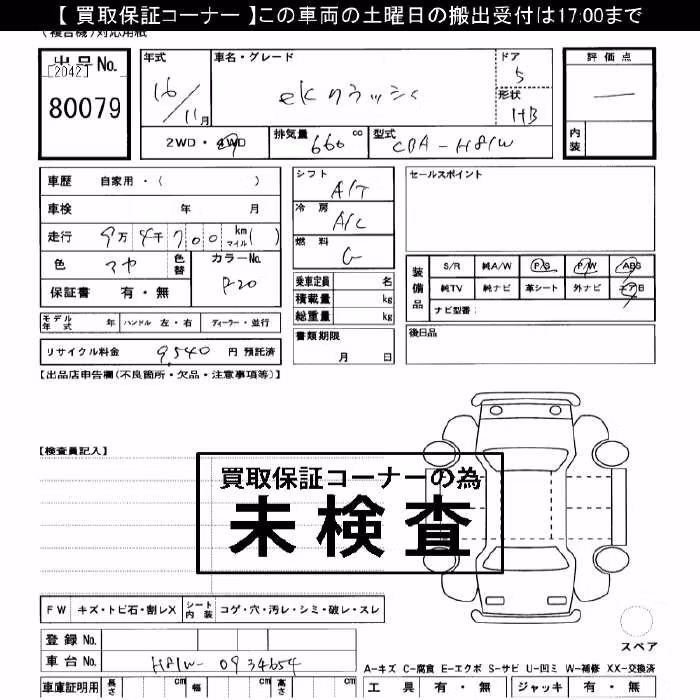 【 買取保証コーナー 】この車両の土曜日の搬出受付は17:00まで
(複合機)対応用紙
出品No.
[2042]
80079
年式
16/11月
車名・グレード
ekクラッシィ
ドア
5
形状
HB
評価点
—
内装
2WD・4WD
排気量
660 cc
型式
CBA-H81W
車歴 自家用・( )
車検 年 月
走行 9万 4千 700 km マイル( )
色
色替
カラーNo.
P20
保証書 有・無
モデル年式 年 ハンドル 左・右 ディーラー・並行
リサイクル料金 9,540 円 預託済
シフト
A/T
冷房
A/C
燃料
G
乗車定員 名
積載量 kg
総重量 kg
書類期限
月 日
セールスポイント
装備品
S/R 純A/W P/S P/W ABS
純TV 純ナビ 革シート 外ナビ エアB
ナビ型番：
後日品
【出品店申告欄(不良箇所・欠品・注意事項等)】
【検査員記入】
買取保証コーナーの為
未検査
FW キズ・トビ石・割レX シート内装 コゲ・穴・汚レ・シミ・破レ・スレ
登録No.
車台No. H81W-0934654
スペア
A-キズ C-腐食 E-エクボ S-サビ U-凹ミ W-補修 XX-交換済
車庫証明用 長さ cm 幅 cm 高さ cm
工具 有・無 ジャッキ 有・無